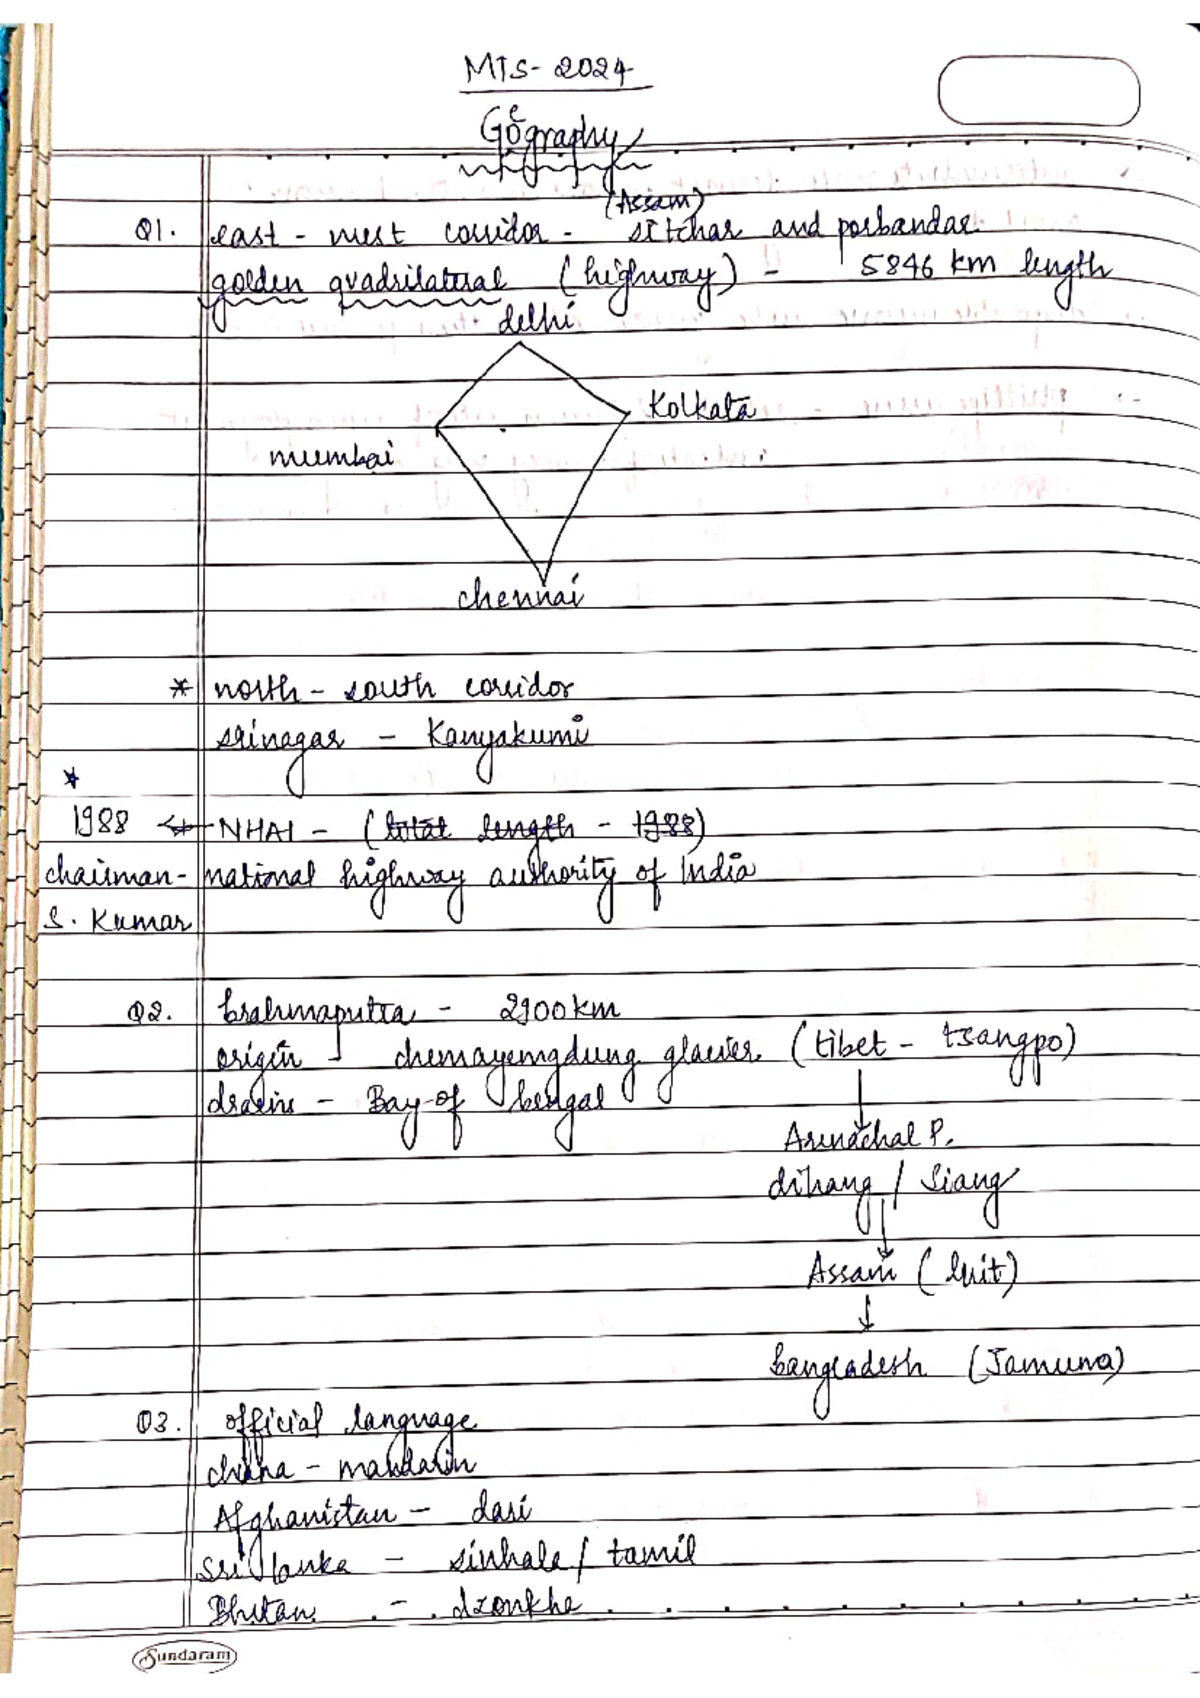 MTS- 2024
Geography
(Assam)
Q1. east - west corridor - silchar and porbandar
golden quadrilateral (highway) - 5846 km length
delhi
Kolkata
mumbai
chennai
* north - south corridor
srinagar - Kanyakumi
*
1988 ← NHAI - (total length - 1988)
chairman - national highway authority of India
S. Kumar
Q2. brahmaputra - 2900 km
origin - chemayemgdung glacier (tibet - tsangpo)
drains - Bay of bengal
Arunachal P.
dihang / Siang
Assam (luit)
bangladesh (Jamuna)
Q3. official language
china - mandarin
Afghanistan - dari
Sri lanka - sinhale / tamil
Bhutan - dzonkhe
Sundaram